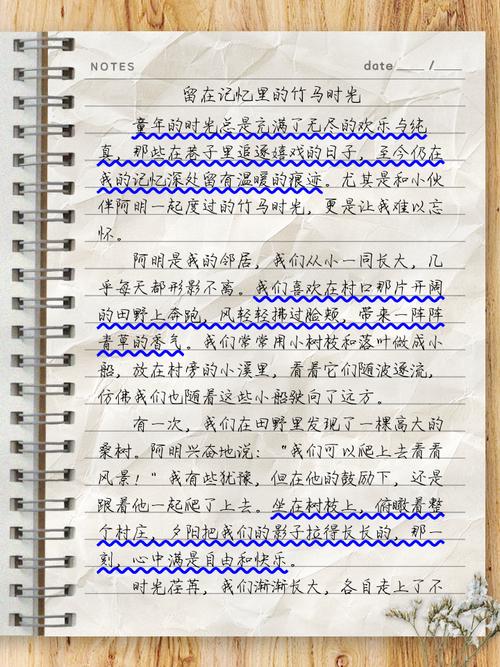 NOTES
date ____ / ____
留在记忆里的竹马时光
童年的时光总是充满了无尽的欢乐与纯
真，那些在巷子里追逐嬉戏的日子，至今仍在
我的记忆深处留有温暖的痕迹。尤其是和小伙
伴阿明一起度过的竹马时光，更是让我难以忘
怀。
阿明是我的邻居，我们从小一同长大，几
乎每天都形影不离。我们喜欢在村口那片开阔
的田野上奔跑，风轻轻拂过脸颊，带来一阵阵
青草的香气。我们常常用小树枝和落叶做成小
船，放在村旁的小溪里，看着它们随波逐流，
仿佛我们也随着这些小船驶向了远方。
有一次，我们在田野里发现了一棵高大的
桑树。阿明兴奋地说：“我们可以爬上去看看
风景！”我有些犹豫，但在他的鼓励下，还是
跟着他一起爬了上去。坐在树枝上，俯瞰着整
个村庄，夕阳把我们的影子拉得长长的，那一
刻，心中满是自由和快乐。
时光荏苒，我们渐渐长大，各自走上了不